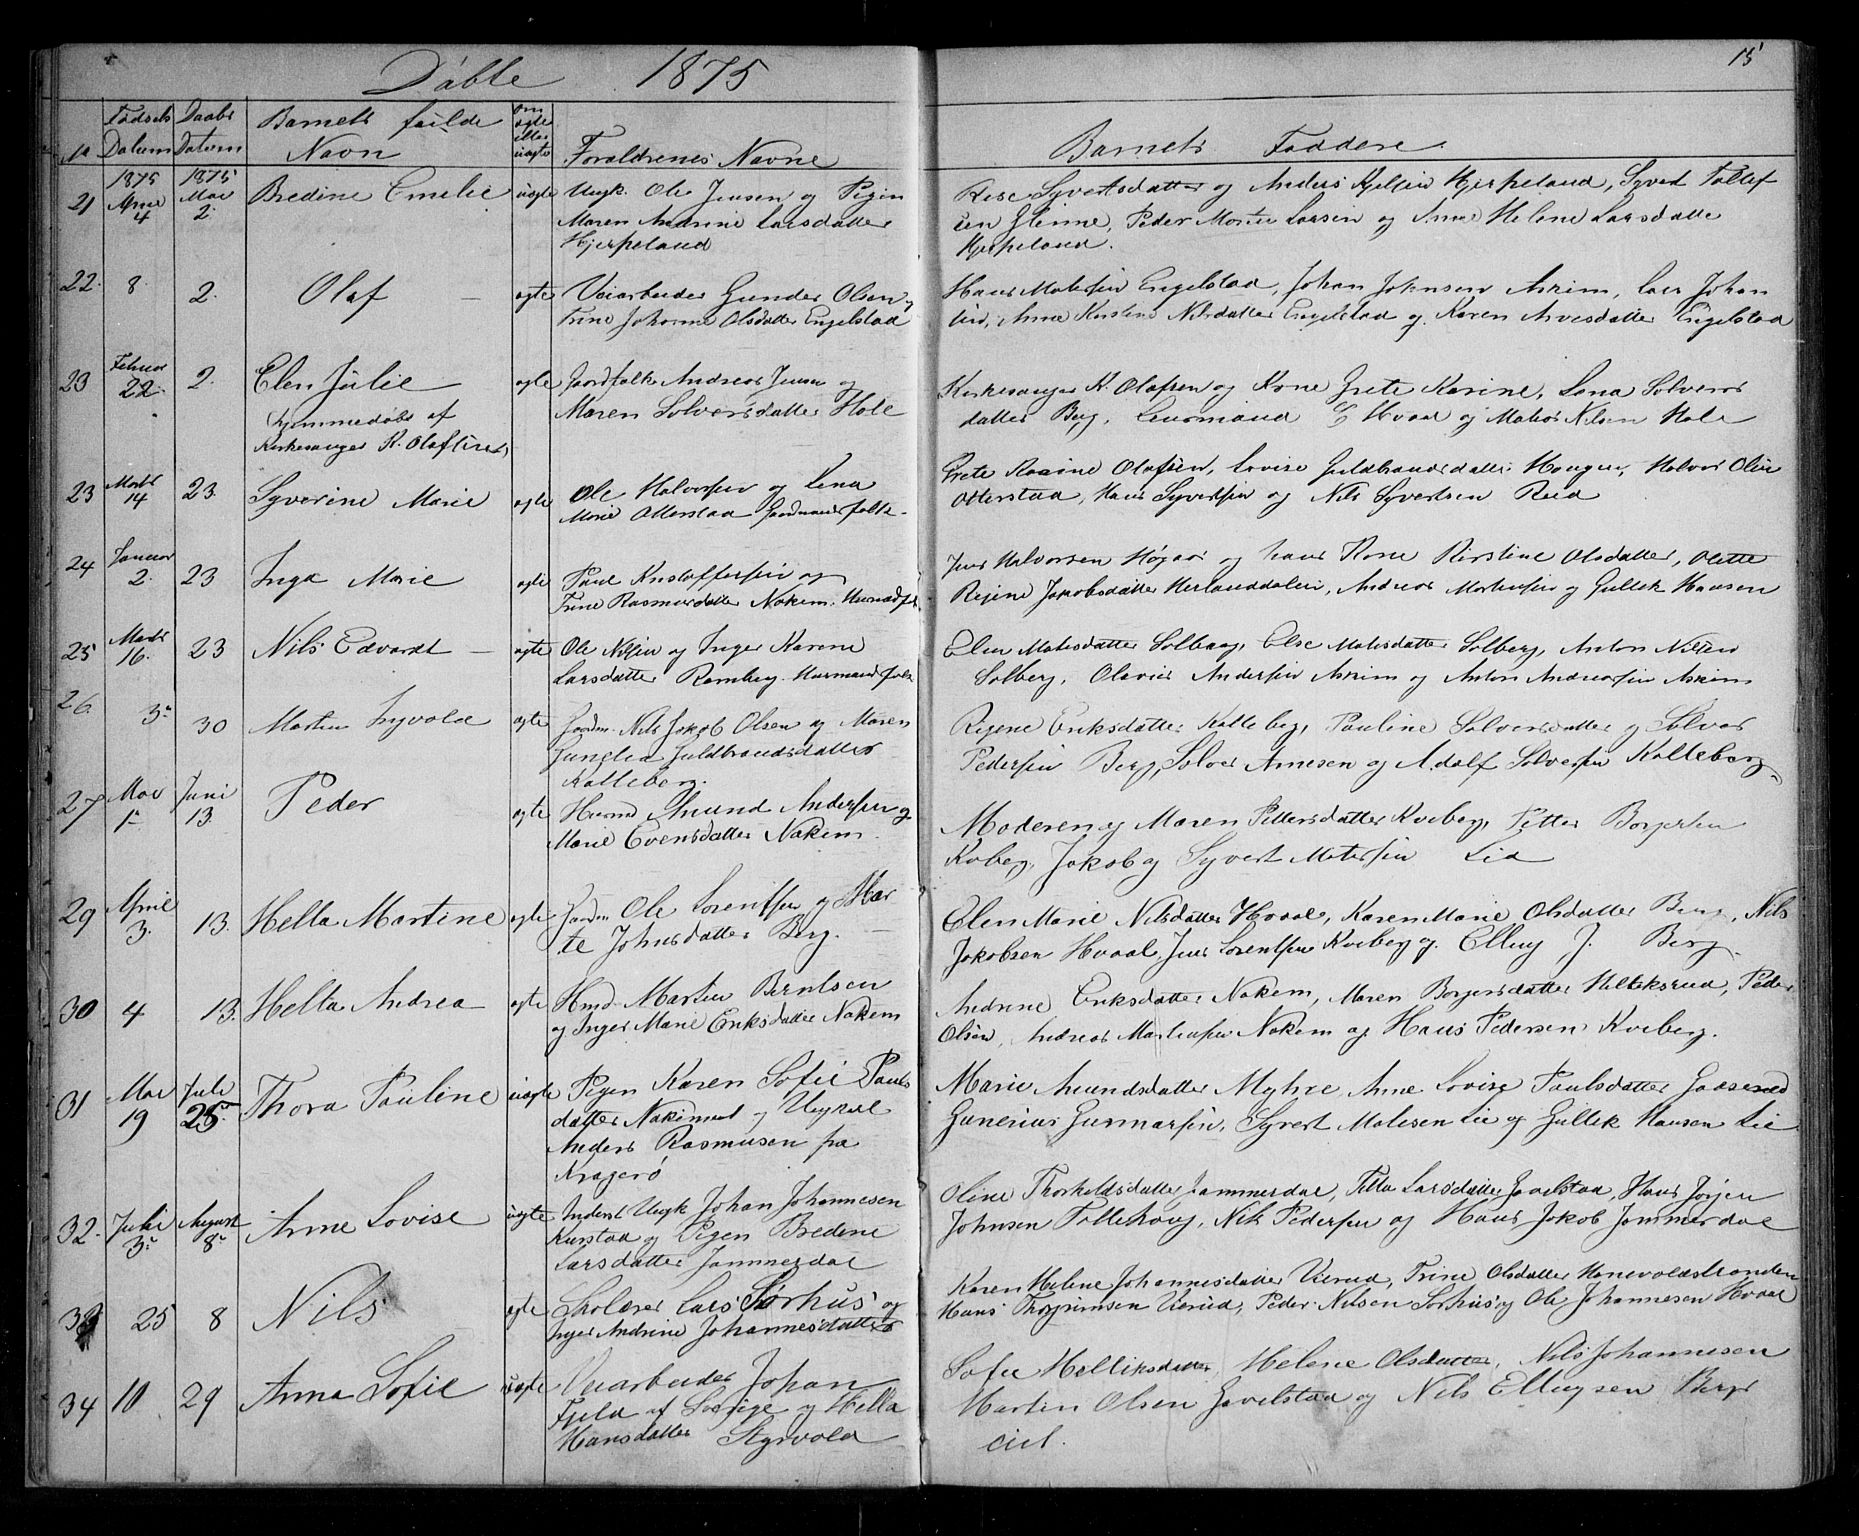 Døbte 1875
15
No
Fødsels Datum
Daabs Datum
Barnets fulde Navn
om ægte eller uægte
Forældrenes Navne
Barnets Faddere
21 1875 4 1875 Mai 2. Bredine Emelie uægte Ungk. Ole Jensen og Pigen
Maren Larsdatter
Hjerpeland
Syvertsdatter og Anders Hjerpeland, Syvert
Glenne, Peder Larsen og Anne Helene Larsdatter
Hjerpeland.
22. 8. 2. Olaf — ægte Veiarbeider Gunder Olsen og
Trine Johanne Olsdatter Engelstad
Hans Engelstad, Johan Johnsen Askim, Lars Johan
Anne Kirstine Nilsdatter Engelstad og Karen Engelstad
23 Februar 22. 2. Elen Julie ægte Gaardfolk Andreas Jensen og
hjemmedøbt af
Kirkesanger K. Olafsen
Maren Solversdatter Hole
Kirkesanger K. Olafsen og Kone Grete Karine, Lena Solvers
datter Berg, Hvaal og Nilsen Hole
23 Marts 14 23. Syverine Marie ægte Ole Halvorsen og Lena
Marie Otterstad Gaardmandsfolk
Grete Karine Olafsen, Lovise Guldbrandsdatter Haugen, Halvor Olsen
Otterstad, Hans Syvertsen og Nils Syvertsen Rud
24 Januar 2. 23 Inga Marie ægte Paul Kristoffersen og
Trine Rasmusdatter Nakem. Husmandsf.
Jens Halvorsen og hans Kone Kirstine Olsdatter, Olette
Regine Jakobsdatter Andreas Martinsen og Gullek Hansen
25 Marts 16. 23 Nils Edvardt — ægte Ole Nilsen og Inger Karine
Larsdatter Ramberg. Husmandsfolk
Elen Matisdatter Solberg, Else Matisdatter Solberg, Anton Nilsen
Solberg, Olavus Andersen Askim og Anton Andreasen Askim
26. 3. 30 Martin Ingvald ægte Gaardm. Nils Jakob Olsen og Maren
Guldbrandsdatter
Kalleberg.
Regine Eriksdatter Kalleberg, Pauline Solversdatter og Solver
Pedersen Berg, Solver Arnesen og Adolf Solversen Kalleberg
27 Mai 1. Juni 13. Peder ægte Husmd Amund Andersen og
Marie Evensdatter Nakem.
Moderen og Maren Pettersdatter Kveberg, Petter Borgersen
Kveberg, Jakob og Syvert Matisen Lia
29 April 3. 13. Hella Martine ægte Gaardm Ole Sorentsen og Mar
te Johnsdatter Berg. —
Elen Marie Nilsdatter Hvaal, Karen Marie Olsdatter Berg, Nils
Jakobsen Hvaal, Jens Sorentsen Kveberg og Elling J. Berg.
30 4 13. Hella Andrea ægte Hmd. Martin Berntsen
og Inger Marie Eriksdatter Nakem
Andrine Eriksdatter Nakem, Maren Borgersdatter Helleksrud, Peder
Olsen, Andreas Martinsen Nakem og Hans Pedersen Kveberg.
31 Mai 19 Juli 25. Thora Pauline uægte Pigen Karen Sofie Pauls
datter og Ungkarl
Anders Rasmusen fra
Kragerø
Marie Amundsdatter Myhre, Anne Lovise Paulsdatter Gaaserud
Gunerius Gunnarsen, Syvert Matisen Lie og Gullek Hansen Lie
32. Juli 3. August 8. Anne Lovise uægte Inderst Ungk Johan Johannesen
og Pigen Bredine
Larsdatter Jammerdal
Oline Thorkeldsdatter Jammerdal, Larsdatter Gavelstad, Hans Jørgen
Johnsen Tollehaug, Nils Pedersen og Hans Jakob Jammerdal
33 25 8 Nils ægte Skolærer Lars Sørhus og
Andrine Johannesdatter
Karen Helene Johannesdatter Vierud, Trine Olsdatter Honevoldstranden
Hans Thorgrimsen Vierud, Peder Nilsen Sørhus og Ole Johannesen Hvaal
34 10 29 Anna Sofie uægte Veiarbeider Johan
Fjeld af Sverige og Hella
Hansdatter Styrvold
Sofie Helliksdatter, Helene Olsdatter, Nils Johannesen
Martin Olsen Gavelstad og Nils Ellingsen Bergs
eiet.